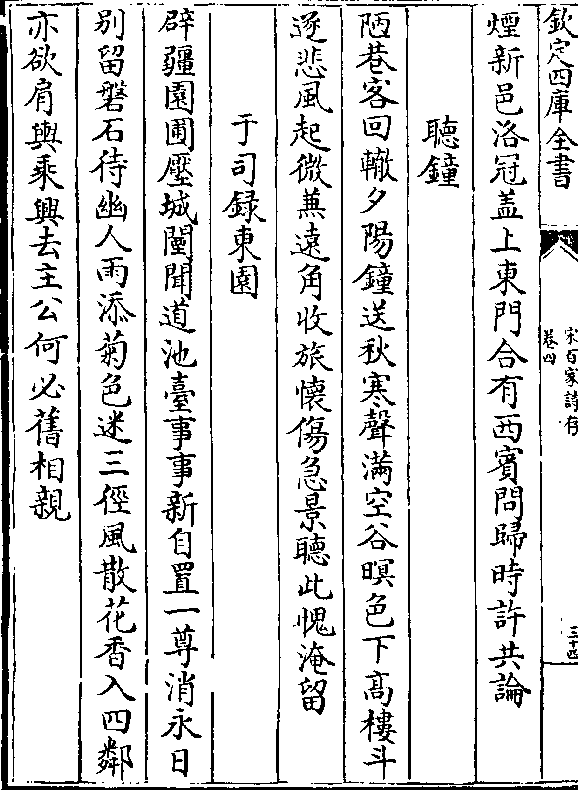 欽定四庫全書
宋百家詩存
卷四
三十四
煙新邑洛冠盖上東門合有西賓問歸時許共論
聽鐘
陋巷客回轍夕陽鐘送秋寒聲滿空谷暝色下髙樓斗
逐悲風起微蕪遠角收旅懐傷急景聽此愧淹留
于司録東園
辟疆園圃壓城闉聞道池臺事事新自置一尊消永日
别留磐石待幽人雨添菊色迷三徑風散花香入四鄰
亦欲肩輿乘興去主公何必舊相親